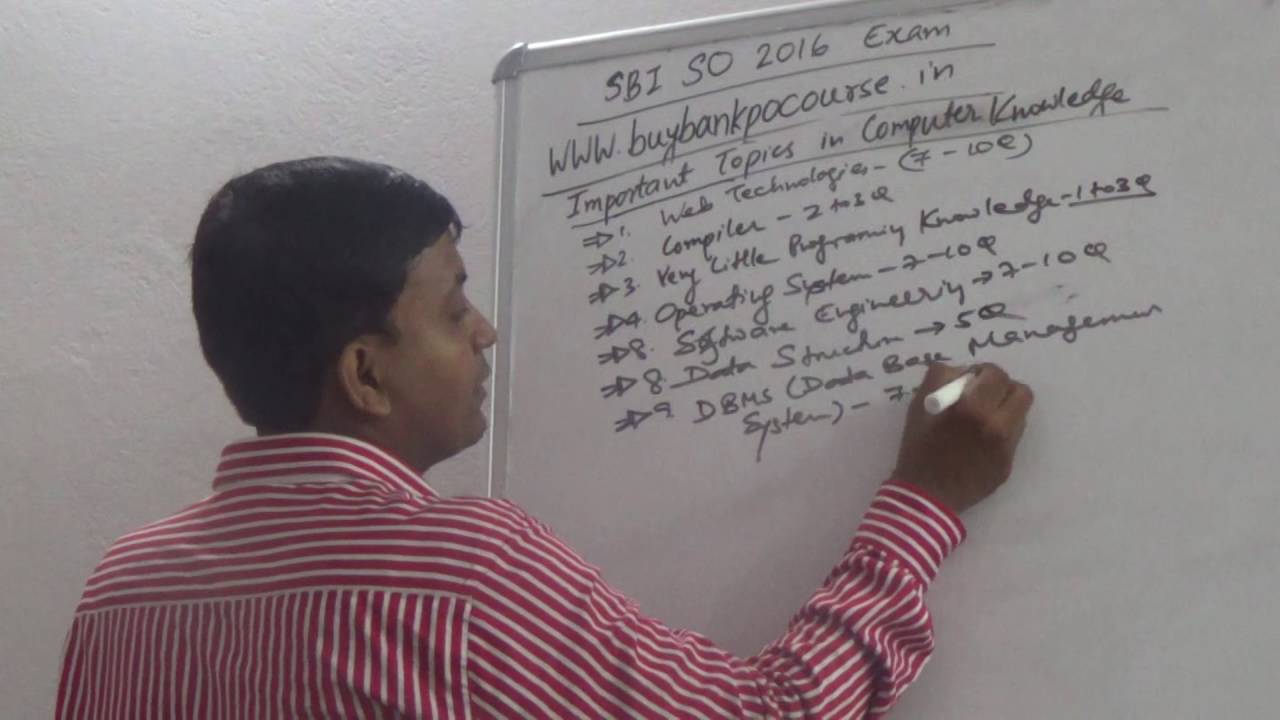 SBI SO 2016 Exam
WWW.buybankpocourse.in
Important Topics in Computer Knowledge
⇒ 1. Web Technologies - (7 - 10Q)
⇒ 2. Compiler - 2 to 3 Q
⇒ 3. Very Little Programing Knowledge - 1 to 3 Q
⇒ 4. Operating System - 7 - 10 Q
⇒ 8. Software Engineering → 7 - 10 Q
⇒ 8. Data Structure → 5 Q
⇒ 9. DBMS (Data Base Managemen
System) - 7